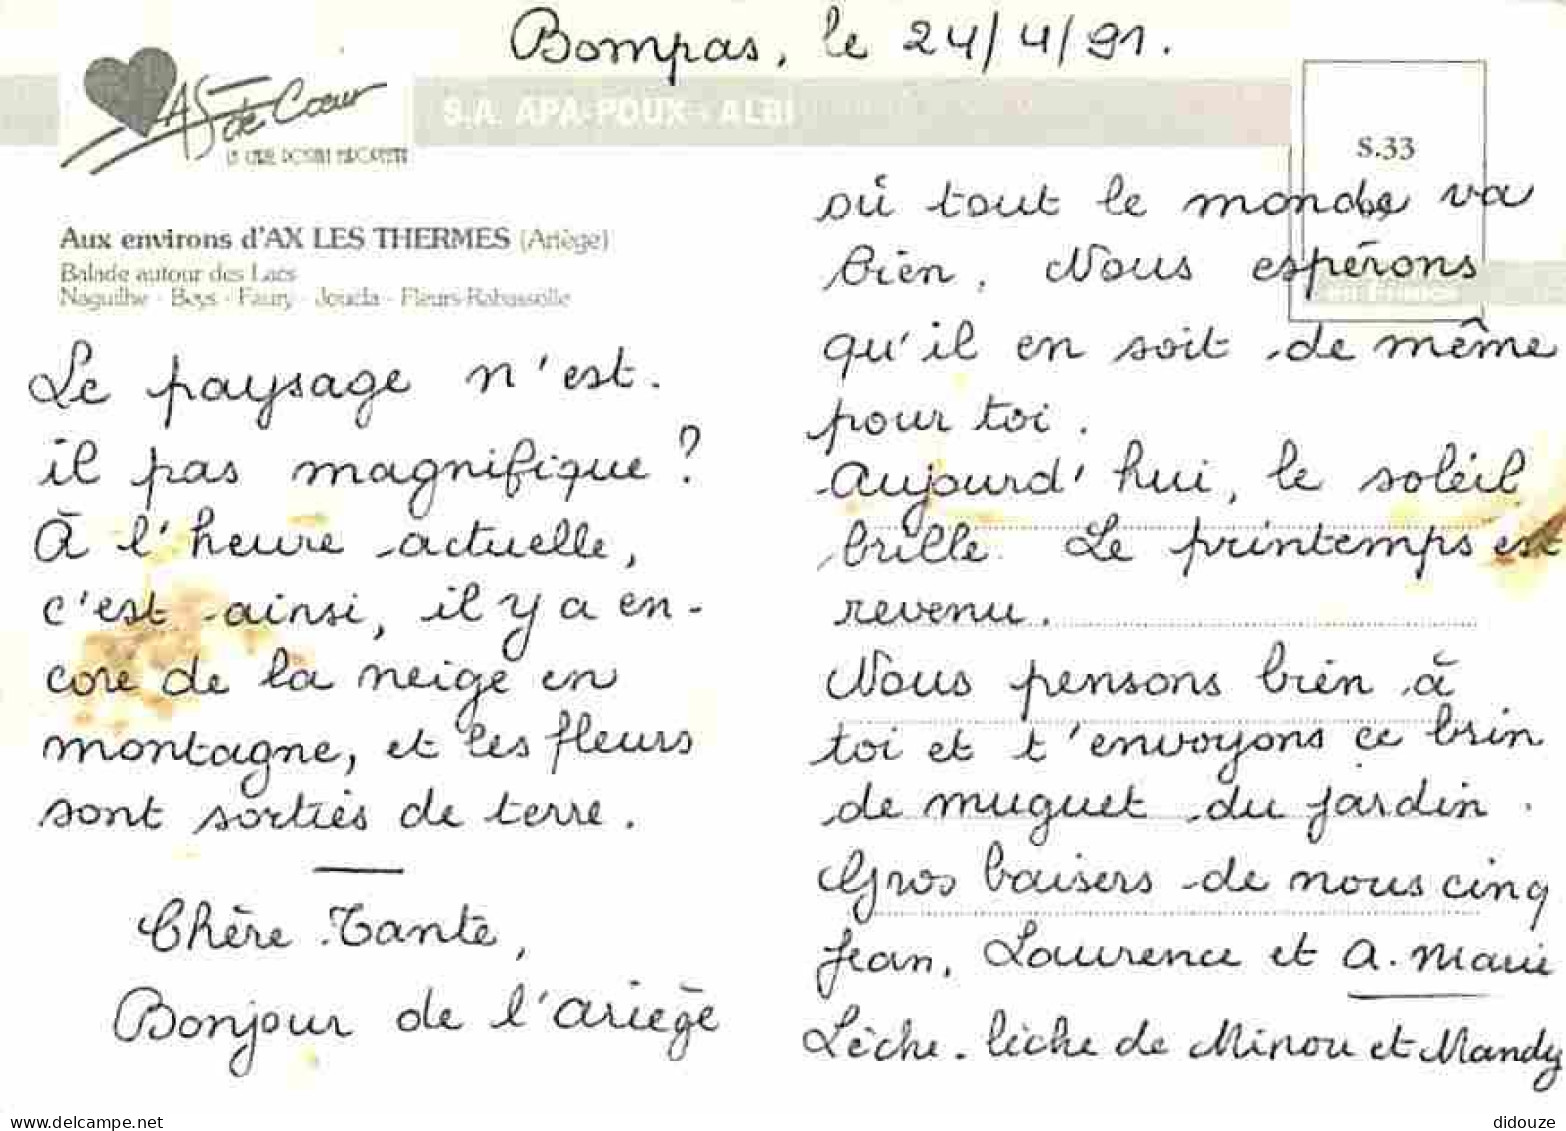 Bompas, le 24/4/91.
AS de Cœur
S.A. APA-POUX - ALBI
S.33
Aux environs d'AX LES THERMES (Ariège)
Balade autour des Lacs
Naguilhe - Beys - Faury - Joucla - Fleurs-Rabassolle
Le paysage n'est.
il pas magnifique?
À l'heure actuelle,
c'est ainsi, il y a en-
core de la neige en
montagne, et les fleurs
sont sorties de terre.
Chère Tante,
Bonjour de l'ariège
où tout le monde va
bien. Nous espérons
qu'il en soit de même
pour toi.
Aujourd'hui, le soleil
brille. Le printemps est
revenu.
Nous pensons bien à
toi et t'envoyons ce brin
de muguet du jardin.
Gros baisers de nous cinq
Jean, Laurence et A. Marie
Lèche-lèche de Minou et Mandy
delcampe.net
didouze